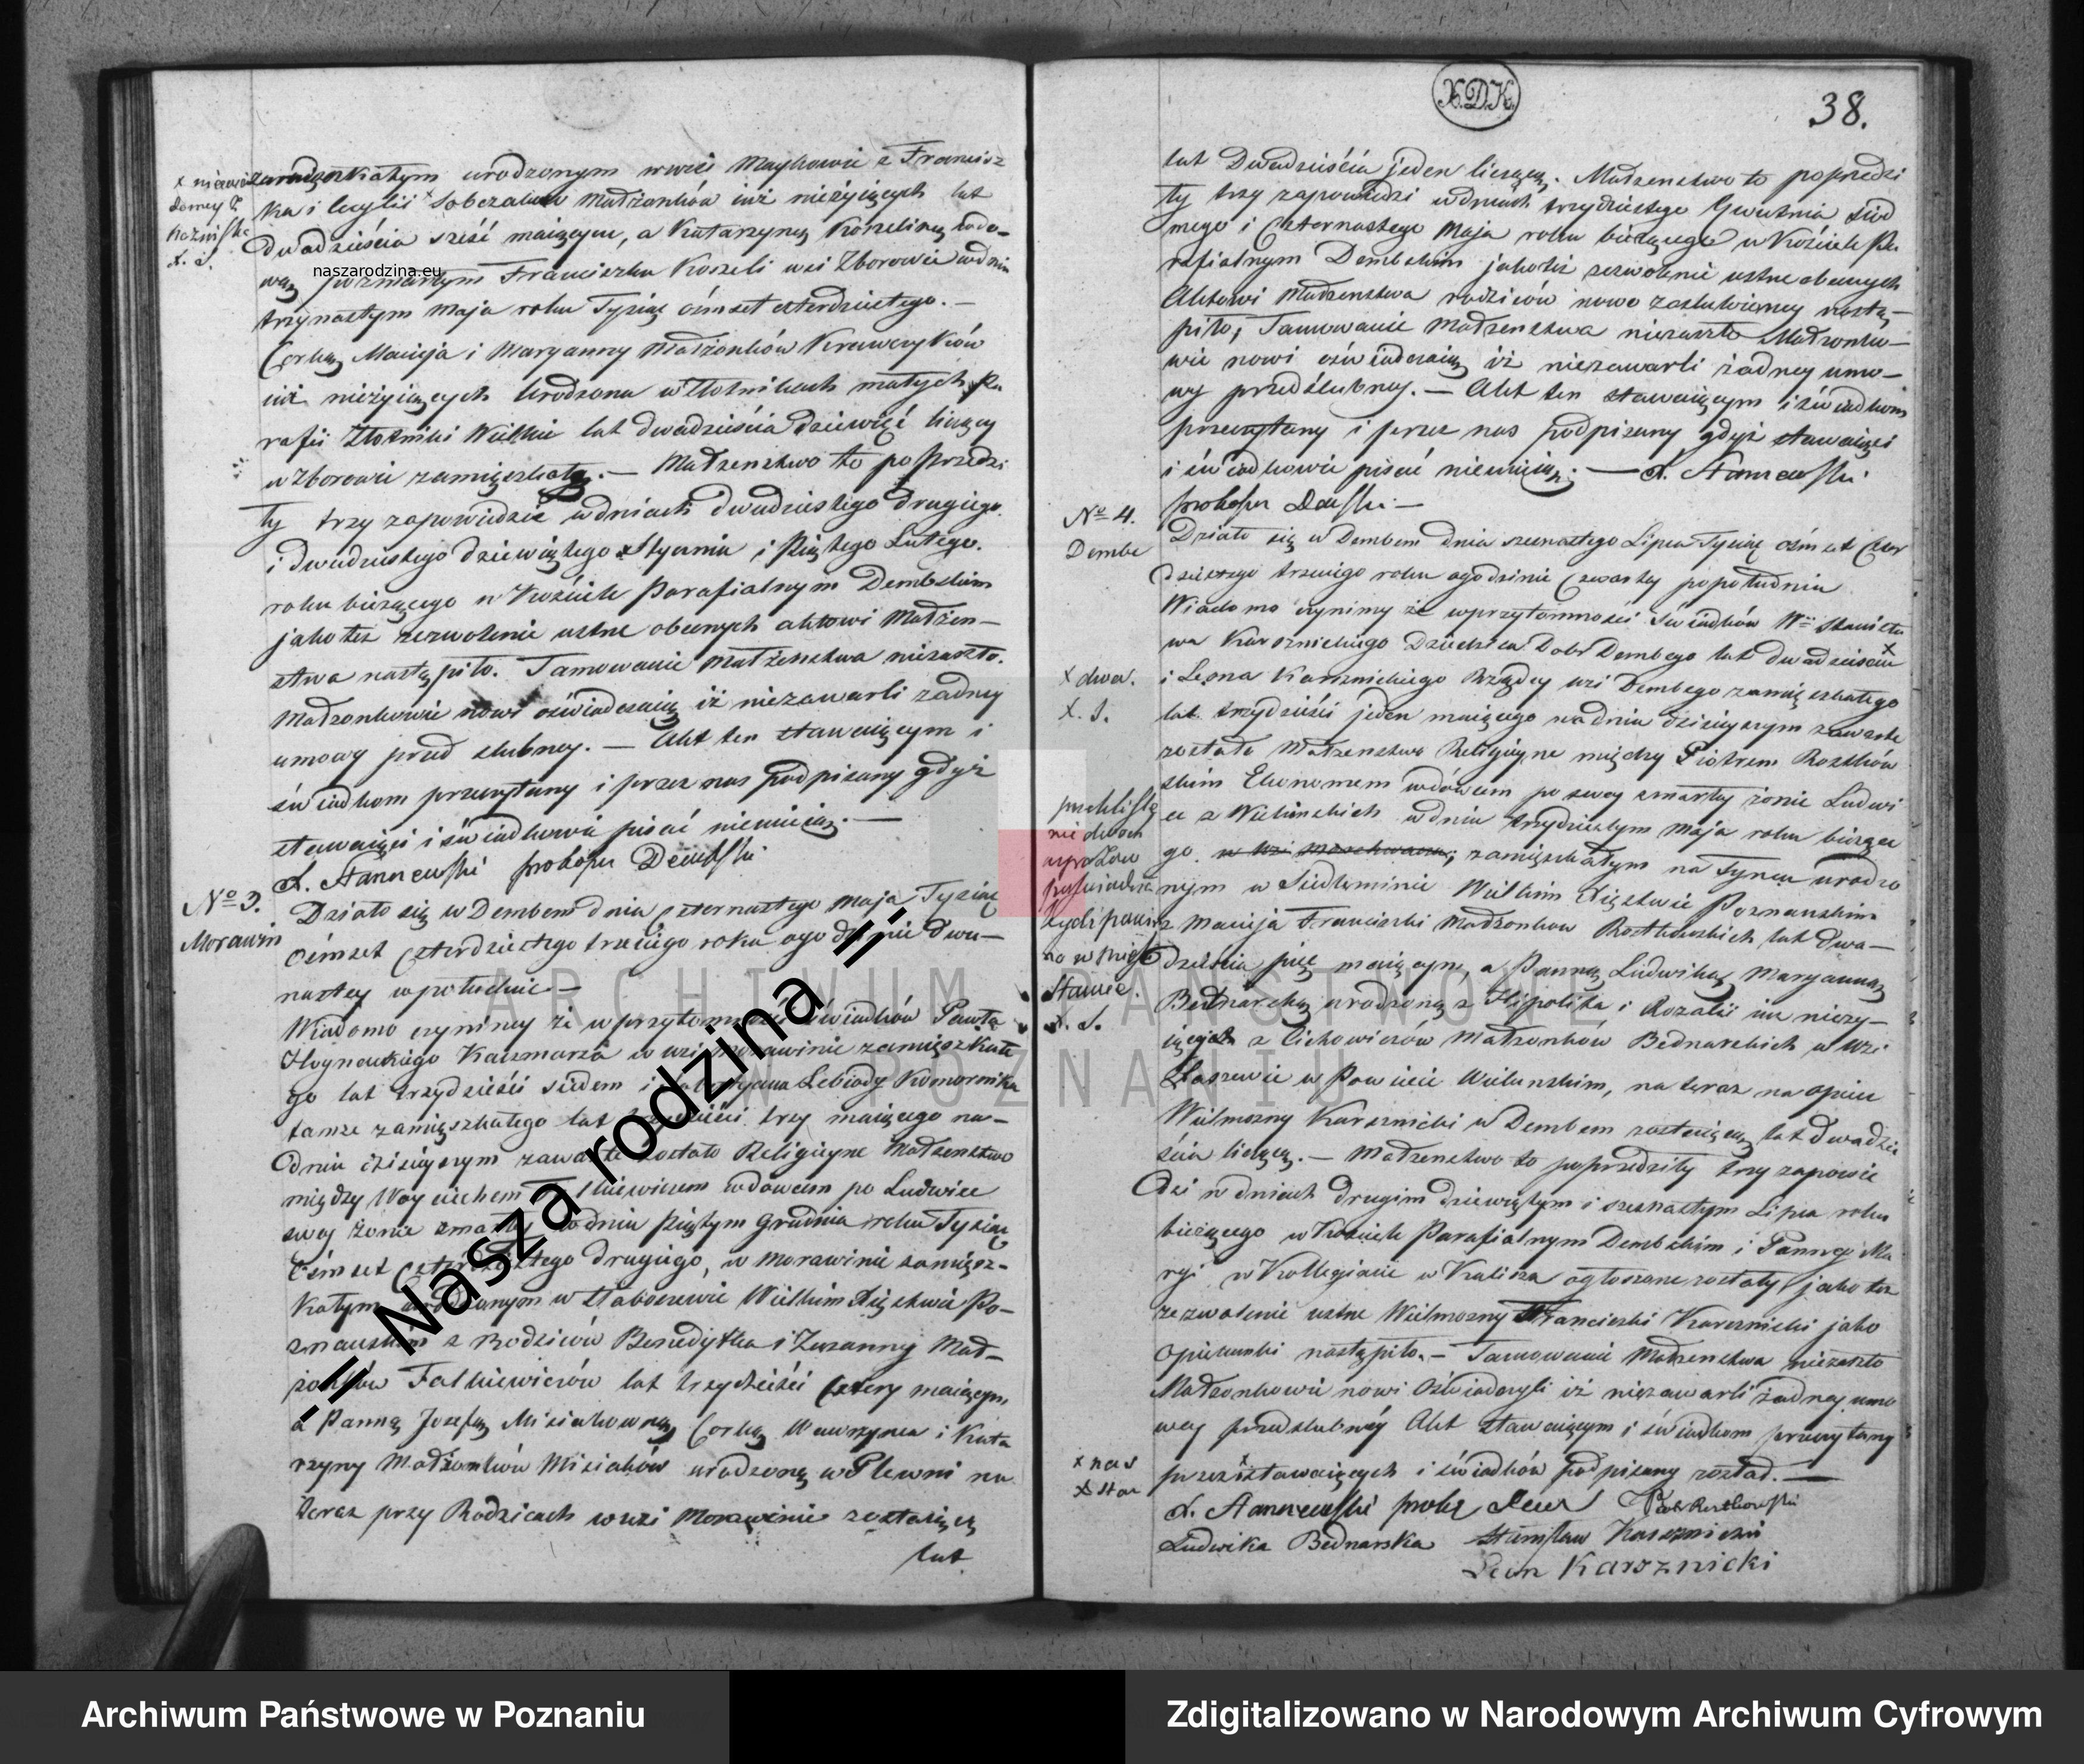 X.D.K.
38.
urodzonym we wsi Maykowie z Francisz
ka i Cecylii Sobczaków Małżonków iuż nieżyiących lat
dwadzieścia sześć maiącym, a Katarzyną Koszeliną wdo-
wą pozmarłym Franciszku Koszeli wsi Zborowie w dniu
trzynastym Maja roku Tysiąc ośmset czterdziestego. —
Corką Macieja i Maryanny Małżonków Krawczyków
iuż nieżyiących Urodzona w Złotnikach małych Pa
rafii Złotniki Wielkie lat dwadzieścia dziewięć liczący
w Zborowie zamięszkałą. — Małżenstwo to poprzedzi
ły trzy zapowiedzie w dniach dwudziestego drugiego
i dwudziestego dziewiątego Stycznia i Piątego Lutego.
roku bieżącego w Kościele Parafialnym Dembskim
jako też zezwolenie ustne obecnych aktowi Małżen-
stwa nastąpiło. Tamowanie Małżenstwa niezaszło.
Małżonkowie nowi oświadczaią iż niezawarli żadney
umowy przed slubney. — Akt ten stawaiącym i
świadkom przeczytany i przez nas podpisany gdyż
stawaiący i świadkowie pisać nieumieią. —
proboszcz Dembski
No 3.
Morawin
Działo się w Dembem dnia czternastego Maja Tysiąc
ośmset czterdziestego trzeciego roku o godzinie dwu-
nastey w południe —
Wiadomo czyniemy że w przytomności świadków Pawła
Kaczmarza w wsi Morawinie zamięszkałe
go lat trzydzieści siedem i Lebiody Komornika
tamże zamięszkałego lat trzy maiącego na-
dniu dzisiyszym zawarte zostało Religiyne Małżenstwo
między Woyciechem wdowcem po Ludwice
swey żonie zmarłey w dniu Piątym Grudnia roku Tysiąc
Ośmset czterdziestego drugiego, w Morawinie zamięsz-
kałym urodzonym w Wielkim Xięstwie Po-
znanskim z Rodziców Benedykta i Zuzanny Mał-
żonków Falkiewiczów lat trzydzieści cztery maiącym
a Panną Jozefą Misiakowną Corką Wawrzynca i Kata
rzyny Małżonków Misiaków urodzoną w Plewni na
teraz przy Rodzicach wewsi Morawinie zostaiącą
lat
lat Dwadzieścia jeden liczącą. Małżenstwo to poprzedzi
ły trzy zapowiedzi w dniach trzydziestego Kwietnia siód
mego i czternastego Maja roku bieżącego w Kościele Pa
rafialnym Dembskim jakoteż zezwolenie ustne obecnych
Aktowi Małżenstwa rodziców nowo zaslubioney nastą-
piło, Tamowanie Małżenstwa niezaszło Małżonko-
wie nowi oświadczaią iż niezawarli żadney umo-
wy przedślubney. — Akt ten stawaiącym i świadkom
przeczytany i przez nas podpisany gdyż stawaiący
i świadkowie pisać nieumieią. —
No 4.
Dembe
Działo się w Dembem dnia szesnastego Lipca Tysiąc ośmset czter
dziestego trzeciego roku o godzinie czwartey popołudniu
Wiadomo czynimy że w przytomności świadków Wo Stanisła
wa Karsznickiego Dziedzica Dobr Dembego lat dwadzieścia x
x dwa.
X. S.
i Leona Karsznickiego Rządcy wsi Dembego zamięszkałego
lat trzydzieści jeden maiącego w dniu dzisieyszym zawarte
zostało Małżenstwo Religiyne między Piotrem Roszkow
skim Ekonomem wdowcem po swey zmarłey żonie Ludwi
ce z Wielinskich w dniu trzydziestym Maja roku bieżące
go zamięszkałym na Tyncu urodzo
nym w Siedleminie Wielkim Xięstwie Poznanskim
z Macieja Franciszki Małżonkow Roszkowskich lat Dwa-
dzieścia pięć maiącym, a Panną Ludwiką Maryanną
Bednarską urodzoną z Hipolita i Rozalii iuż nieży-
iących z Cichowiczów Małżonków Bednarskich w Wsi
w Powiecie Wielunskim, na teraz na opiece
Wielmożny Karsznicki w Dembem zostaiącą lat dwadzie
ścia liczącą. — Małżenstwo to poprzedziły trzy zapowie
dzi w dniach drugim dziewiątym i szesnastym Lipca roku
bieżącego w Kościele Parafialnym Dembskim i Panny Ma
ryi w Kollegiacie w Kaliszu ogłoszone zostały, jako też
zezwolenie ustne Wielmożny Franciszki Karsznicki jako
opiekunki nastąpiło. — Tamowanie Małżenstwa niezaszło
Małżonkowie nowi Oświadczyli iż niezawarli żadney umo
wey przedslubney Akt stawaiącym i świadkom przeczytany
x nas
x sta
przez x stawaiących i świadków podpisany został. —
Piotr Roszkowski
Ludwika Bednarska Stanisław Karsznicki
Leon Karsznicki
naszarodzina.eu
-:= Nasza rodzina =:-
ARCHIWUM PAŃSTWOWE
W POZNANIU
Archiwum Państwowe w Poznaniu
Zdigitalizowano w Narodowym Archiwum Cyfrowym